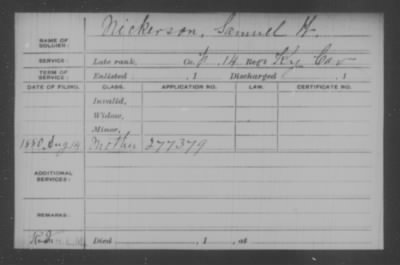 NAME OF SOLDIER: Nickerson, Samuel H.
SERVICE: Late rank, Co. F, 14 Reg't Ky Cav
TERM OF SERVICE: Enlisted , 1 Discharged , 1
DATE OF FILING. CLASS. APPLICATION NO. LAW. CERTIFICATE NO.
Invalid,
Widow,
Minor,
1880 Aug 14 Mother 277379
ADDITIONAL SERVICES:
REMARKS:
Died , 1 , at